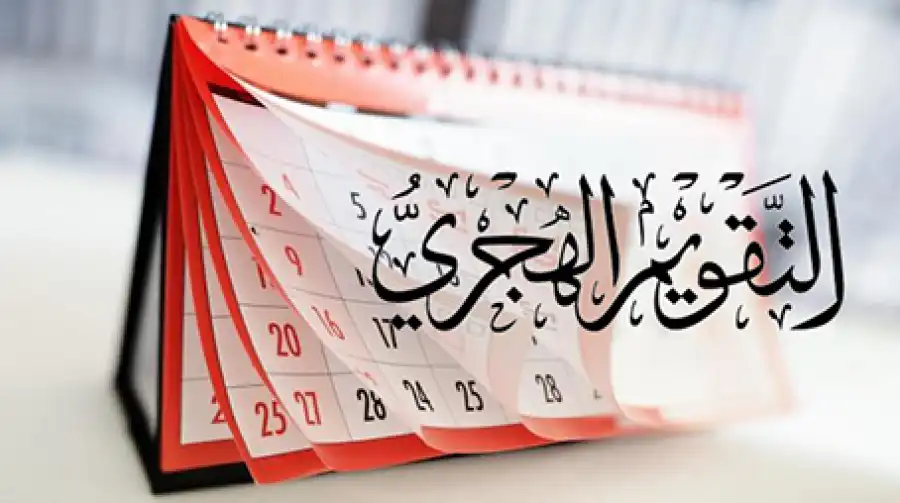 التَّقويمُ الهُجْريُّ
2 4 5
9
16 17
20
25 27 28 24 25 28